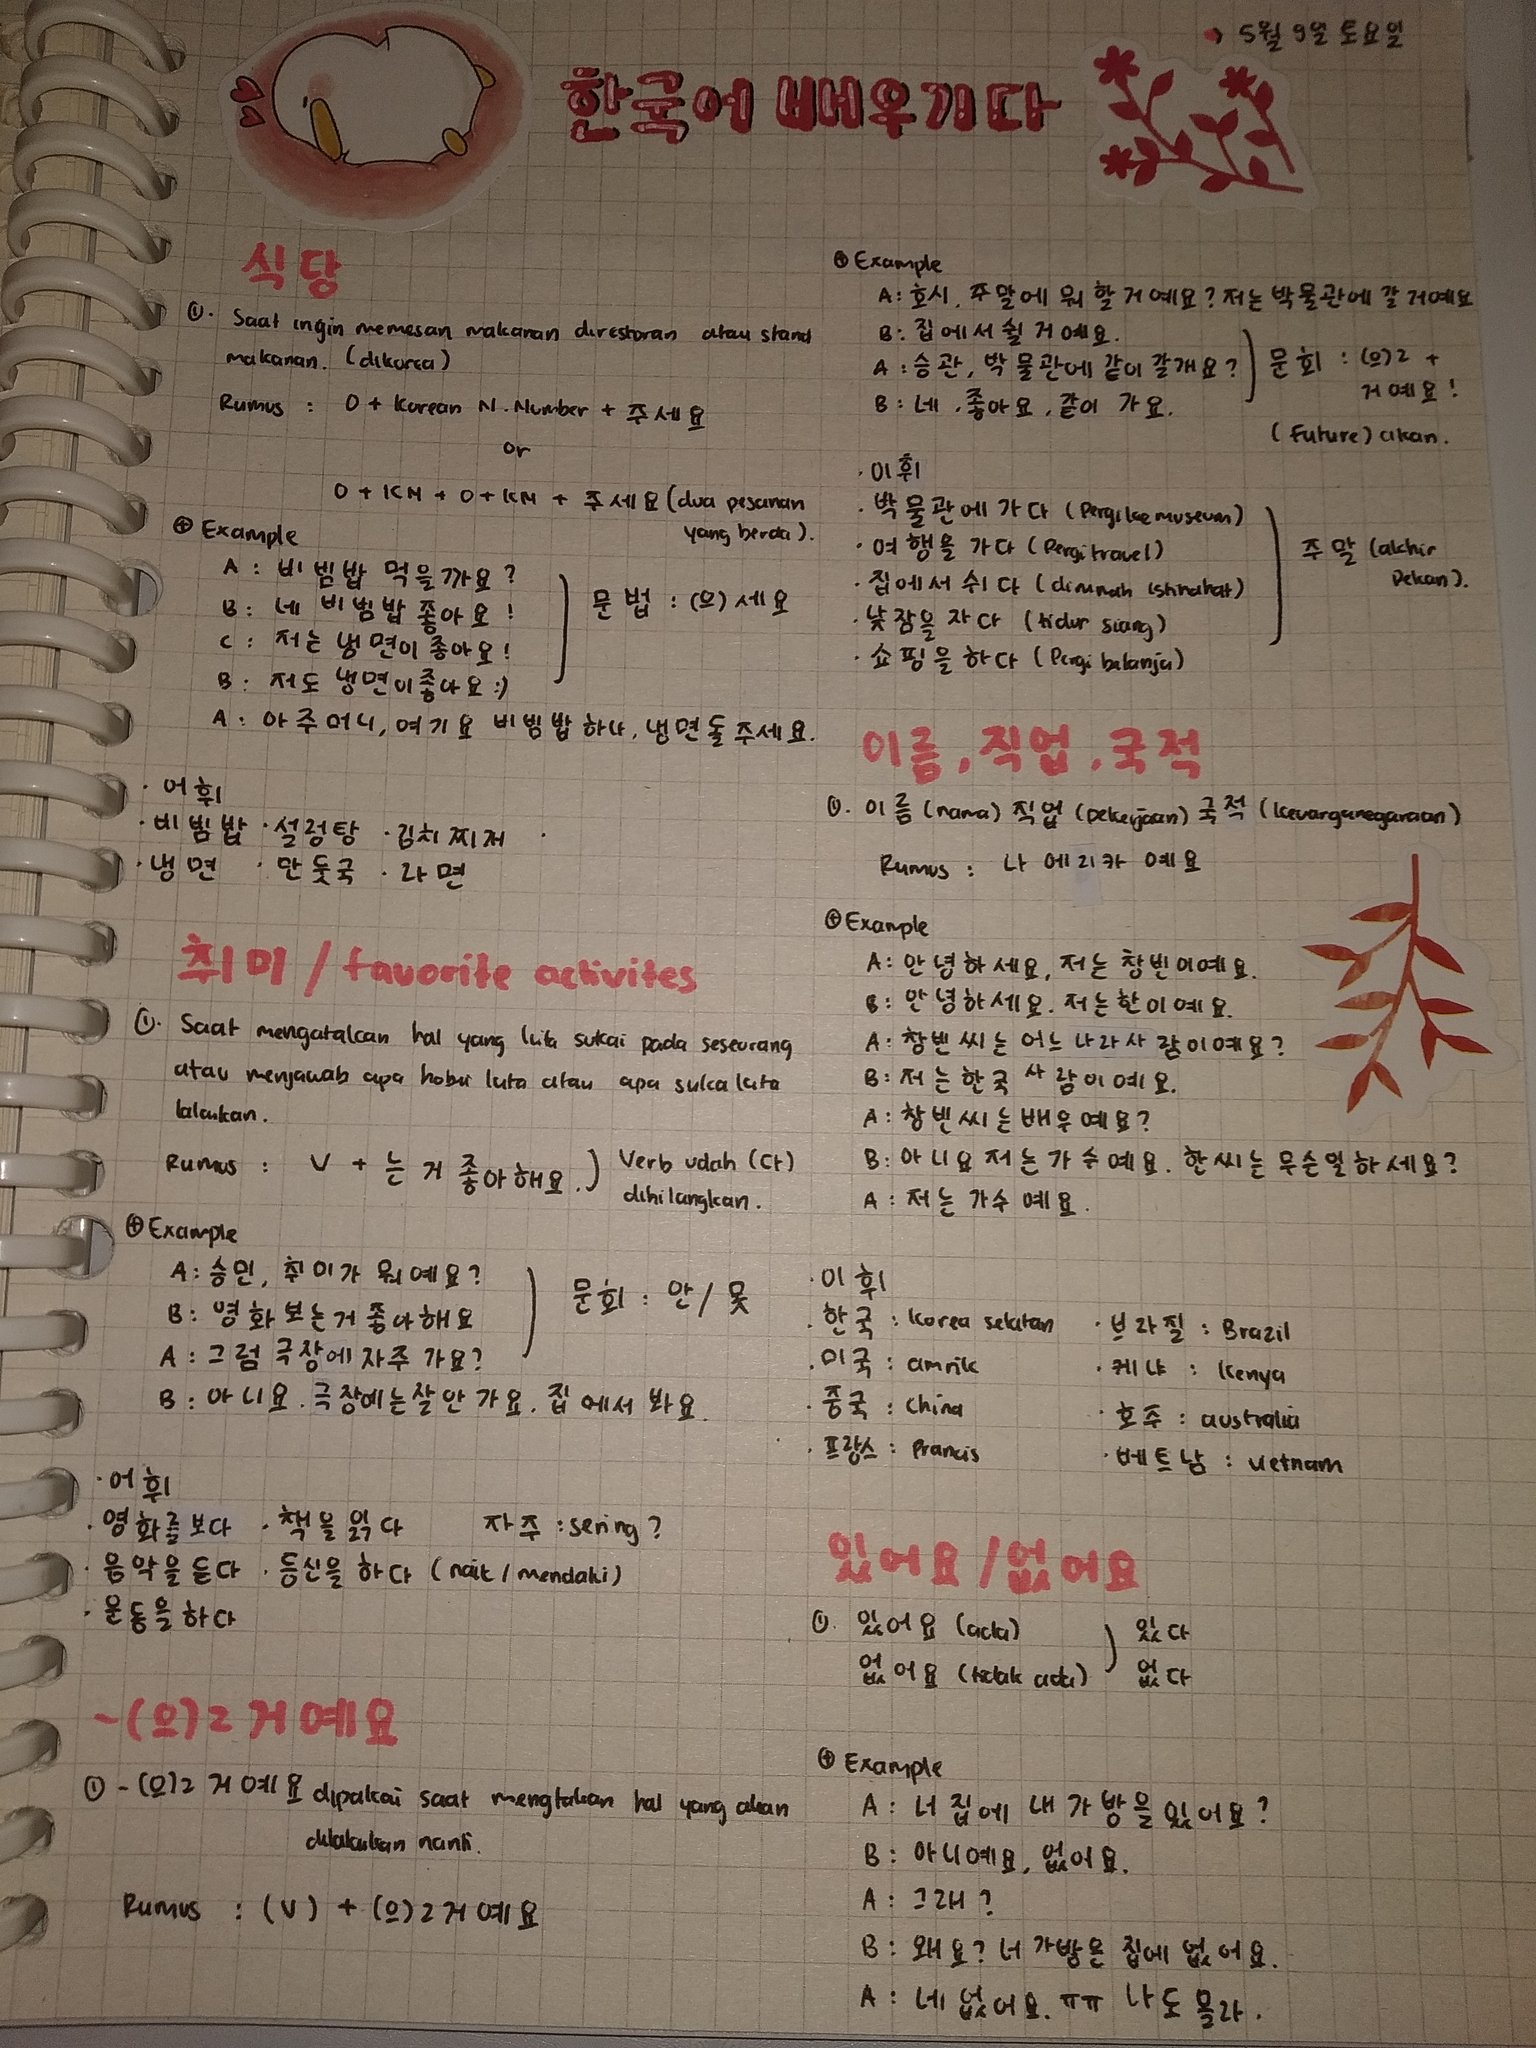 5월 9일 토요일
한국어 배우기다
식당
①. Saat ingin memesan makanan direstoran atau stand
makanan. (dikorea)
Rumus : O + Korean N. Number + 주세요
or
O + KN + O + KN + 주세요 (dua pesanan
yang berda).
⊕ Example
A : 비빔밥 먹을까요?
B : 네 비빔밥 좋아요!
C : 저는 냉면이 좋아요!
B : 저도 냉면이 좋아요 :)
문법 : (으)세요
A : 아주머니, 여기요 비빔밥 하나, 냉면 둘 주세요.
· 어휘
· 비빔밥 · 설렁탕 · 김치찌저
· 냉면 · 만둣국 · 라면
취미 / favorite activites
①. Saat mengatalcan hal yang kita sukai pada seseorang
atau menjawab apa hobi kita atau apa suka kita
lalaukan.
Rumus : V + 는 거 좋아해요.
Verb udah (다)
dihilangkan.
⊕ Example
A : 승민, 취미가 뭐예요?
B : 영화 보는거 좋아해요
A : 그럼 극장에 자주 가요?
문회 : 안 / 못
B : 아니요. 극장에는 잘 안 가요. 집에서 봐요.
· 어휘
· 영화를 보다 · 책을 읽다 자주 : sering?
· 음악을 듣다 · 등신을 하다 (nait / mendaki)
· 운동을 하다
~(으)ㄹ 거예요
① -(으)ㄹ 거예요 dipakai saat mengtakan hal yang akan
dilakukan nanti.
Rumus : (V) + (으)ㄹ거예요
⊕ Example
A : 호시, 주말에 뭐 할 거예요? 저는 박물관에 갈 거예요
B : 집에서 쉴 거예요.
A : 승관, 박물관에 같이 갈개요?
B : 네, 좋아요, 같이 가요.
문회 : (으)ㄹ +
거예요!
(Future) akan.
· 이휘
· 박물관에 가다 (Pergi ke museum)
· 여행을 가다 (Pergi travel)
· 집에서 쉬다 (dirumah istirahat)
· 낮잠을 자다 (tidur siang)
· 쇼핑을 하다 (Pergi belanja)
주말 (akhir
Pekan).
이름, 직업, 국적
①. 이름 (nama) 직업 (pekerjaan) 국적 (kewarganegaraan)
Rumus : 나 에리카 예요
⊕ Example
A : 안녕하세요, 저는 창빈이예요.
B : 안녕하세요. 저는 한이예요.
A : 창빈 씨는 어느 나라 사람이예요?
B : 저는 한국 사람이예요.
A : 창빈 씨는 배우예요?
B : 아니요 저는 가수예요. 한 씨는 무슨 일 하세요?
A : 저는 가수예요.
· 이휘
· 한국 : Korea selatan · 브라질 : Brazil
· 미국 : amrik · 케냐 : Kenya
· 중국 : China · 호주 : australia
· 프랑스 : Prancis · 베트남 : vietnam
있어요 / 없어요
①. 있어요 (ada) 있다
없어요 (tidak ada) 없다
⊕ Example
A : 너 집에 내 가방을 있어요?
B : 아니예요, 없어요.
A : 그래?
B : 왜요? 너 가방은 집에 없어요.
A : 네 없어요. ㅠㅠ 나도 몰라.